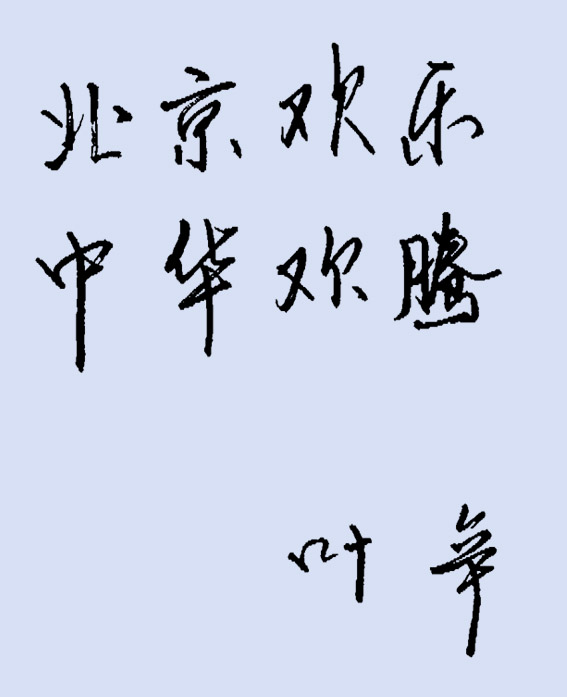 北京欢乐
中华欢腾
叶辛